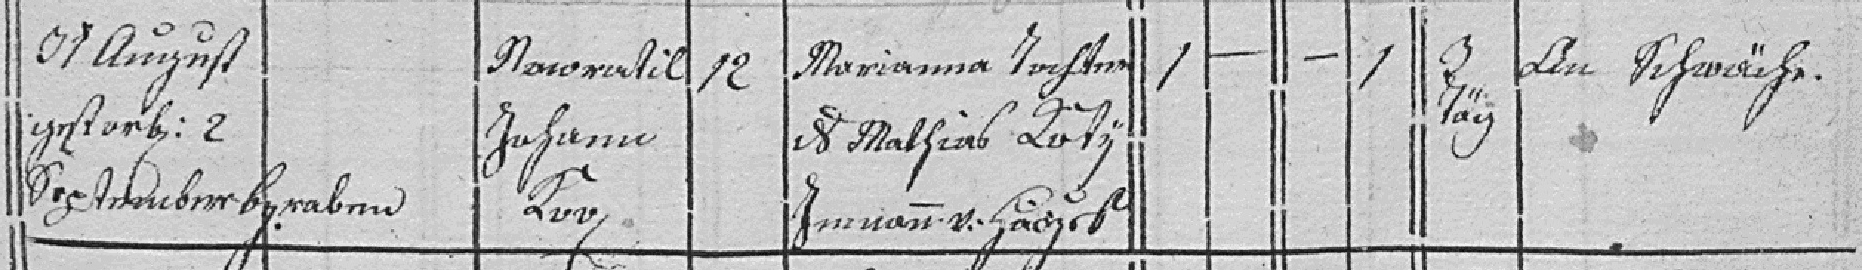 31 August
gestorb: 2
September begraben
Nawratil
Johann
Koo.
12
Marianna Tochter
des Mathias Koty
Inmann v.
1 — — 1
3
Täg
An Schwäche.